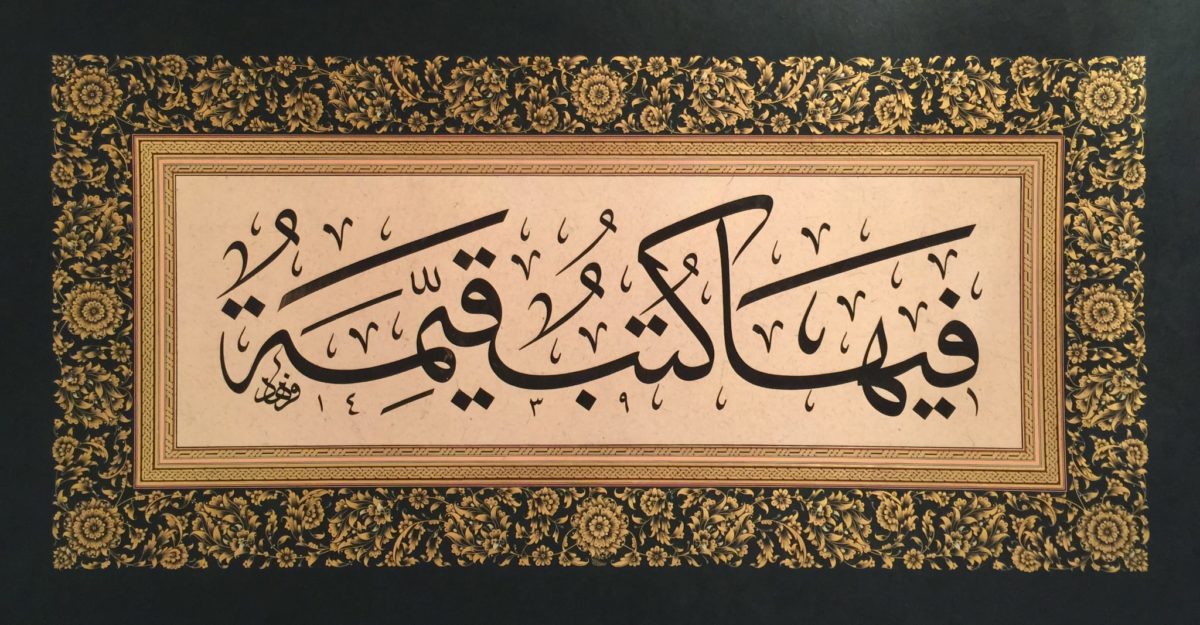 فِيهَا كُتُبٌ قَيِّمَةٌ
١٤٣٩